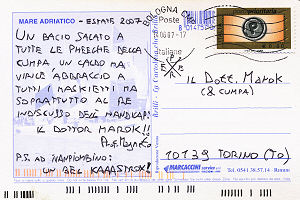 MARE ADRIATICO - ESTATE 2007
UN BACIO SALATO A
TUTTE LE PHEEGHE DELLA
CUMPA UN CALDO MA
VIRILE ABBRACCIO A
TUTTI I MASKIETTI MA
SOPRATTUTTO AL RE
INDISCUSSO DELL'HANDICAP:
IL DOTTOR MAROK!!
P.S. AD
UN BEL KAAASTROX!
BOLOGNA
Poste
Italiane
posta prioritaria
IL DOTT. MAROK
(& CUMPA)
10139 TORINO (TO)
MARCACCINI
Tel. 0541.38.57.14 - Rimini